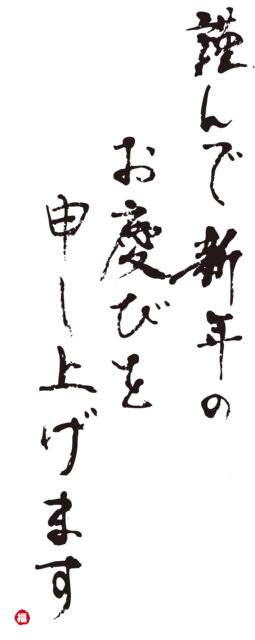 謹んで新年の
お慶びを
申し上げます
福